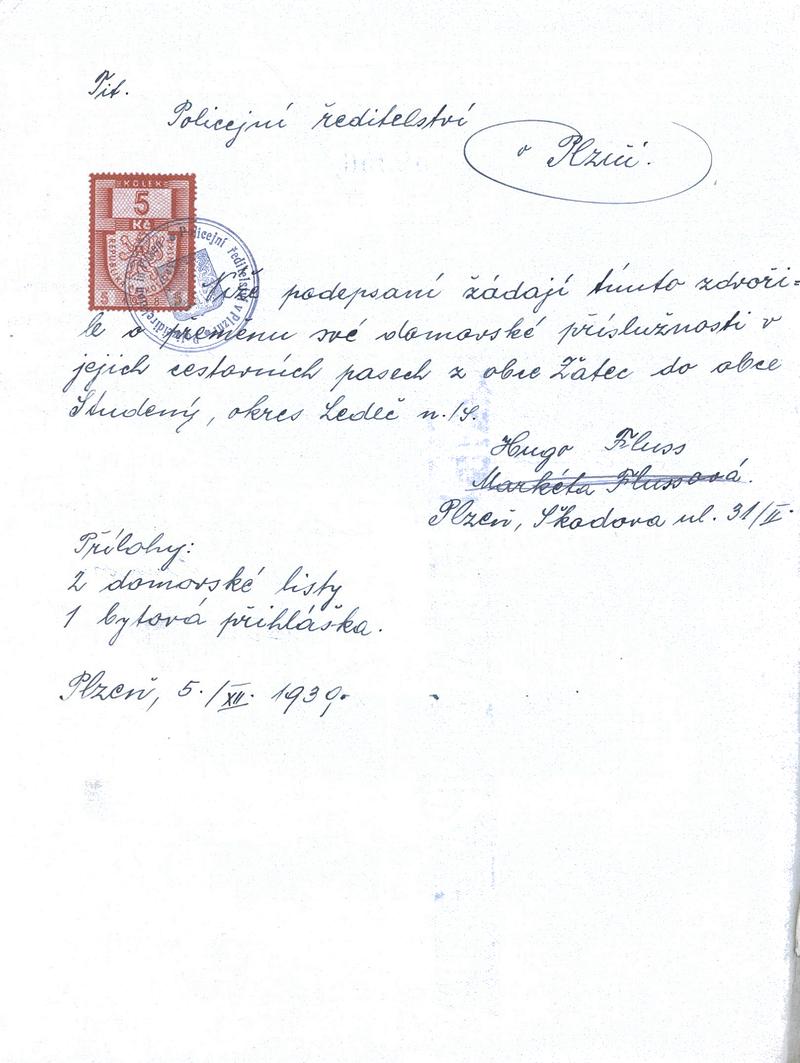 Tit.
Policejní ředitelství
v Plzni.
KOLEK
5
Kč
Policejní ředitelství v Plzni
Níže podepsaní žádají tímto zdvoři=
le o přeměnu své domovské příslužnosti v
jejich cestovních pasech z obce Žatec do obce
Studený, okres Ledeč n./S.
Hugo Fluss
Markéta Flussová.
Plzeň, Škodova ul. 31/II.
Přílohy:
2 domovské listy
1 bytová přihláška.
Plzeň, 5./XII. 1939.